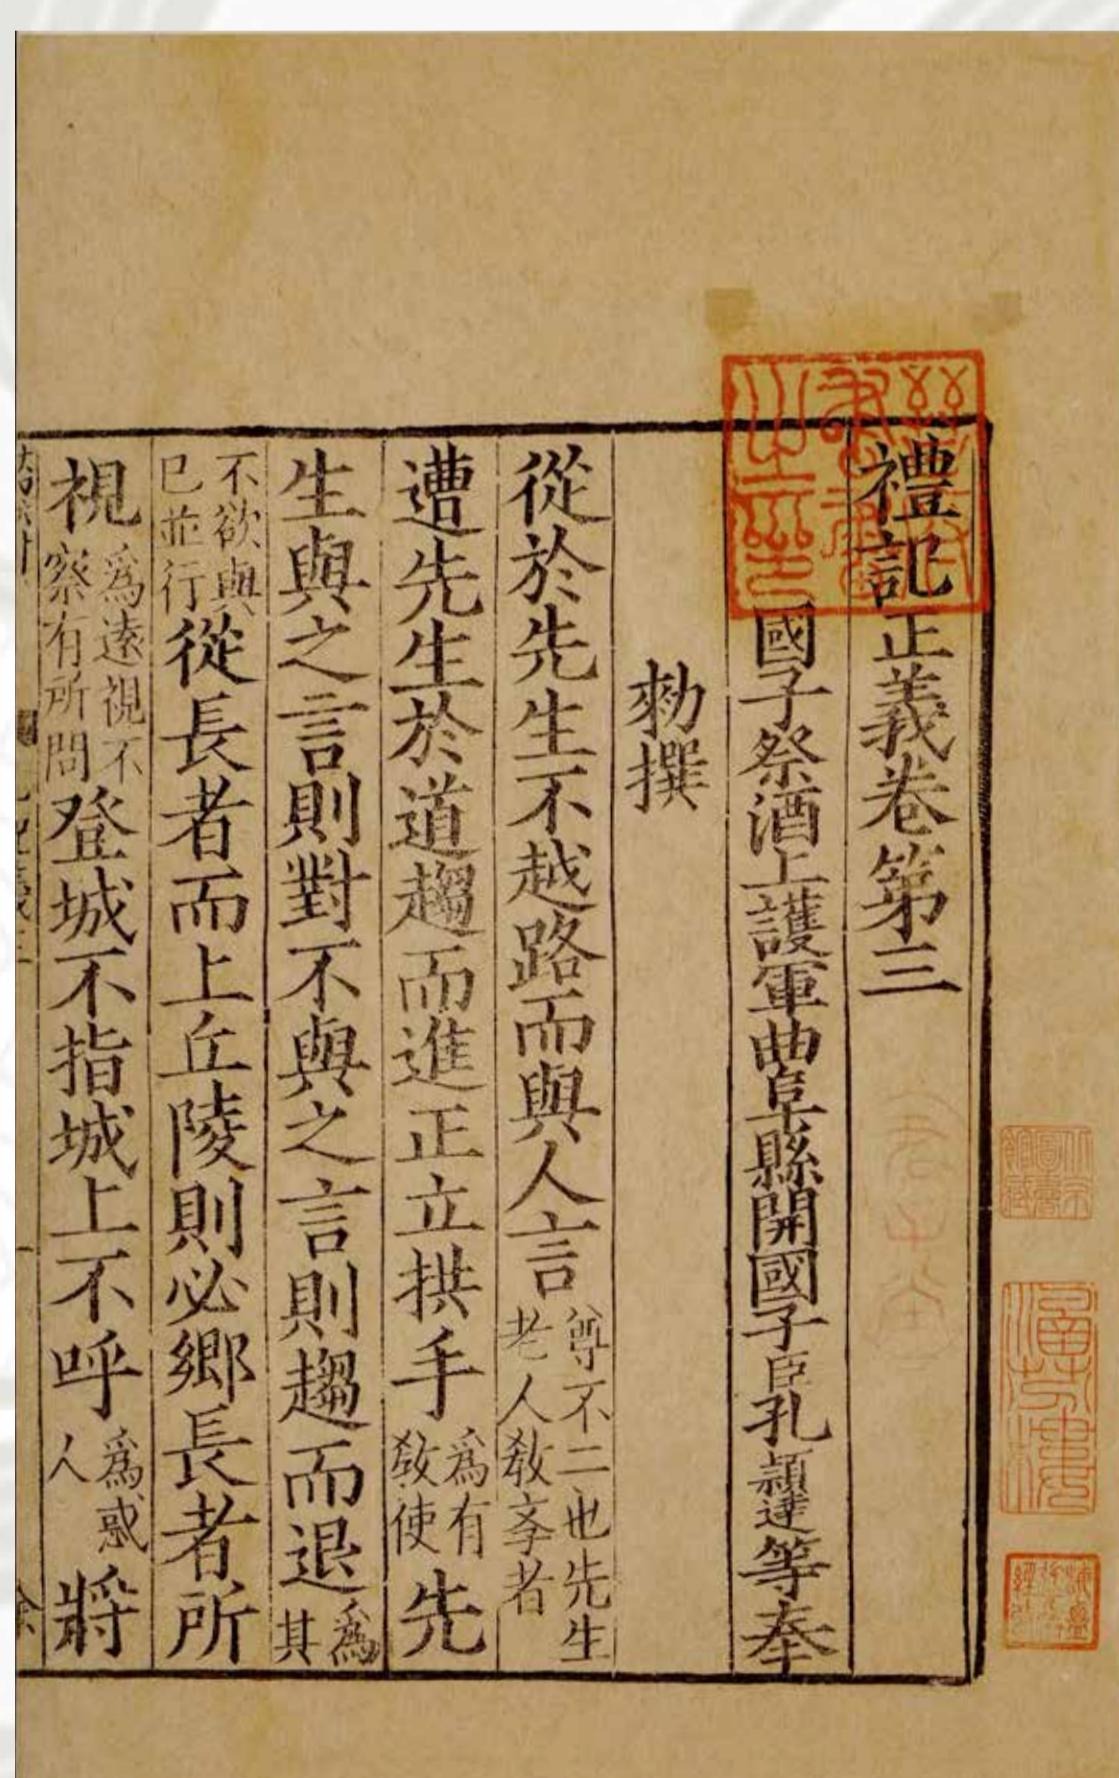 禮記正義卷第三
國子祭酒上護軍曲阜縣開國子臣孔穎達等奉
勑撰
從於先生不越路而與人言尊不二也先生老人教孝者
遭先生於道趨而進正立拱手爲有教使先
生與之言則對不與之言則趨而退爲其
不欲與已並行從長者而上丘陵則必鄉長者所
視爲遠視不察有所問登城不指城上不呼爲惑人將